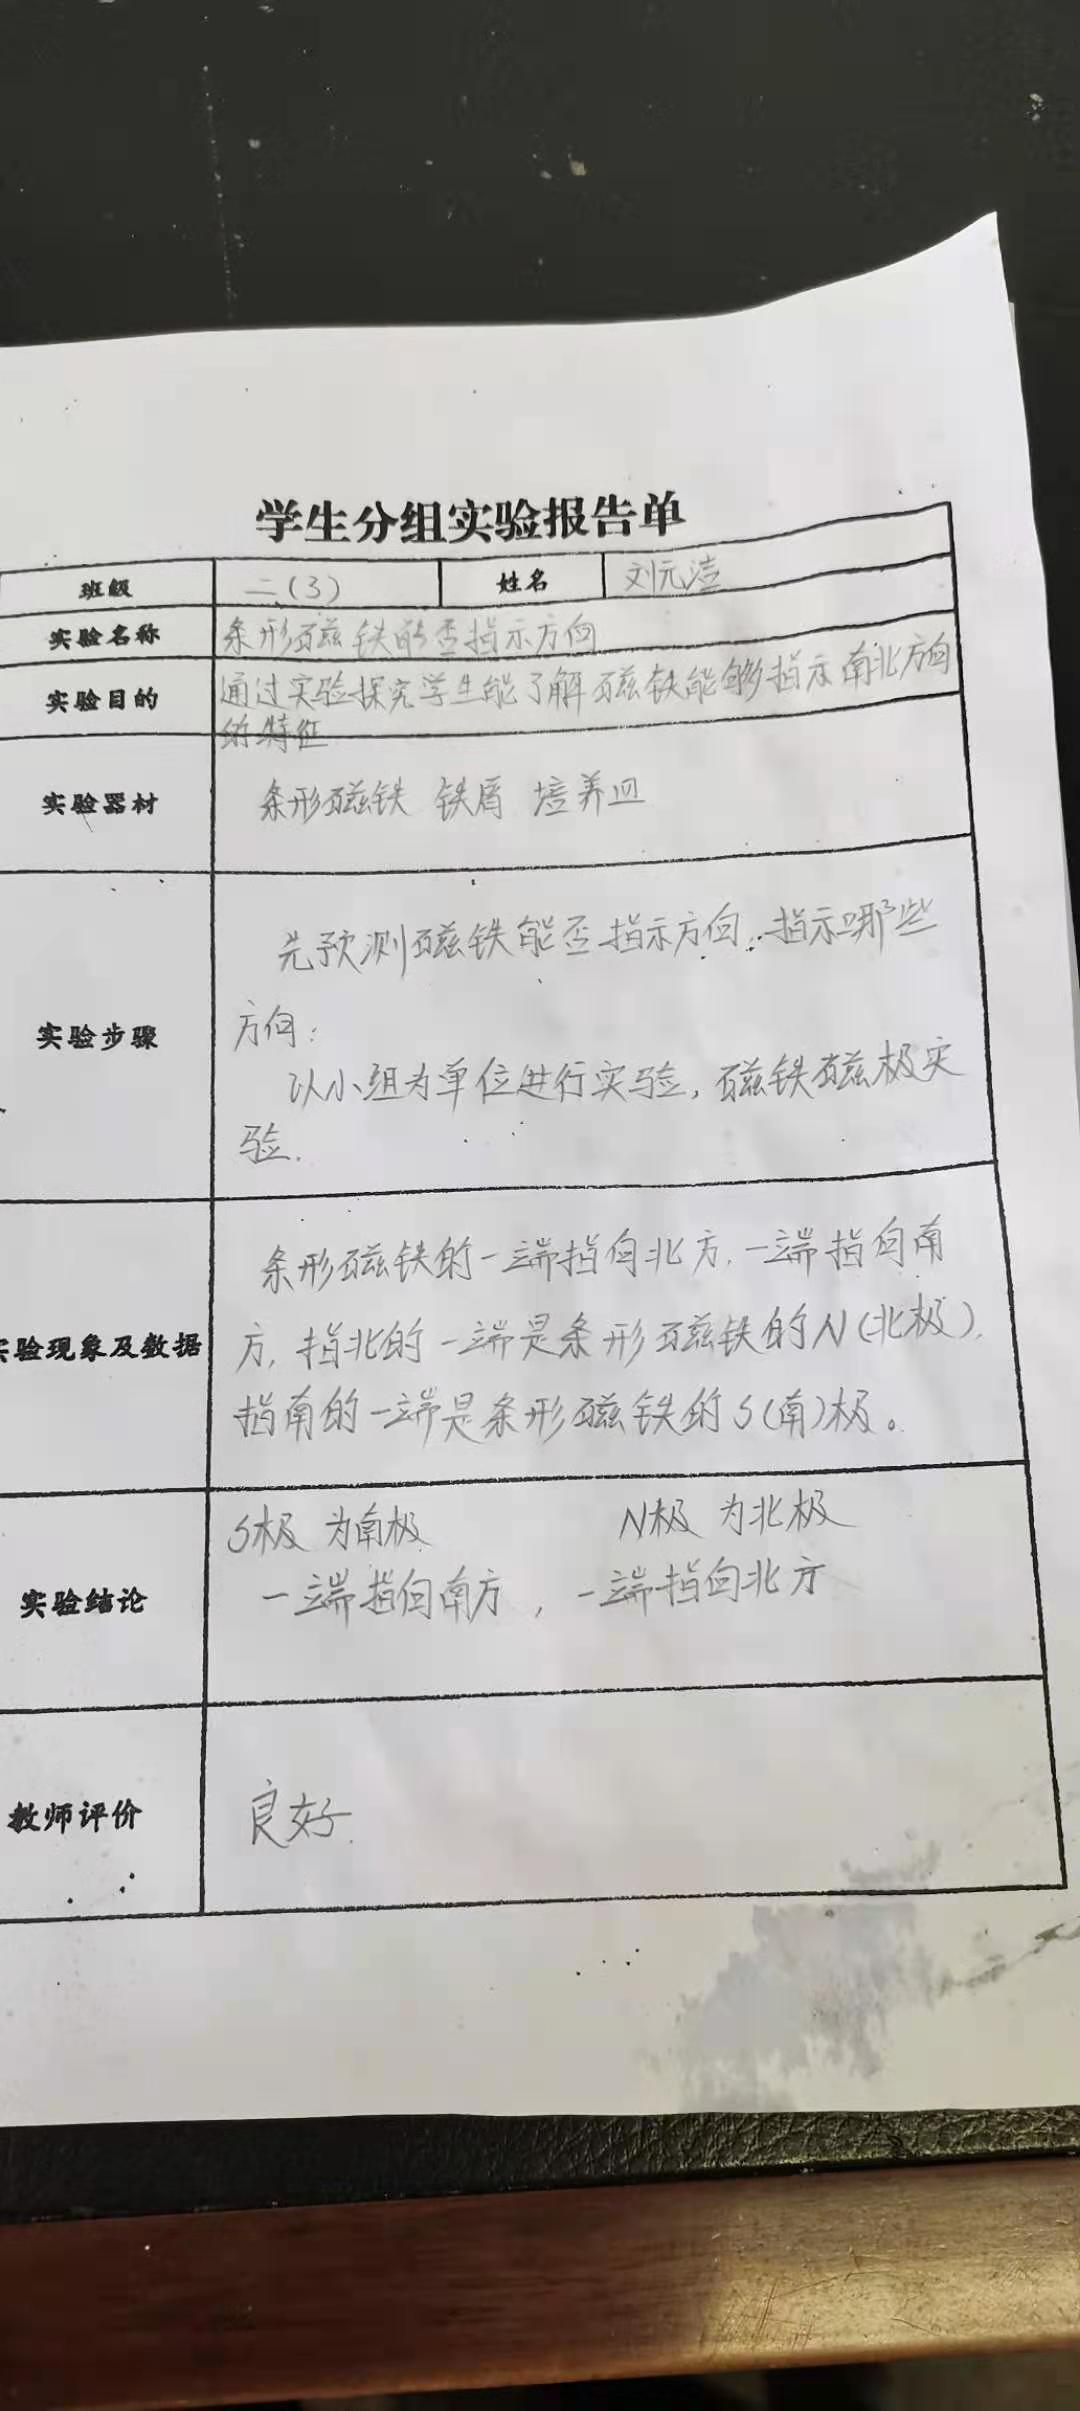 学生分组实验报告单
班级 二(3) 姓名 刘元洁
实验名称 条形磁铁能否指示方向
实验目的 通过实验探究学生能了解磁铁能够指示南北方向
的特征
实验器材 条形磁铁 铁屑 培养皿
先预测磁铁能否指示方向,指示哪些
实验步骤 方向:
以小组为单位进行实验,磁铁磁极实
验.
条形磁铁的一端指向北方,一端指向南
实验现象及数据 方,指北的一端是条形磁铁的N(北极).
指南的一端是条形磁铁的S(南)极。
S极 为南极 N极 为北极
实验结论 一端指向南方,一端指向北方
教师评价 良好